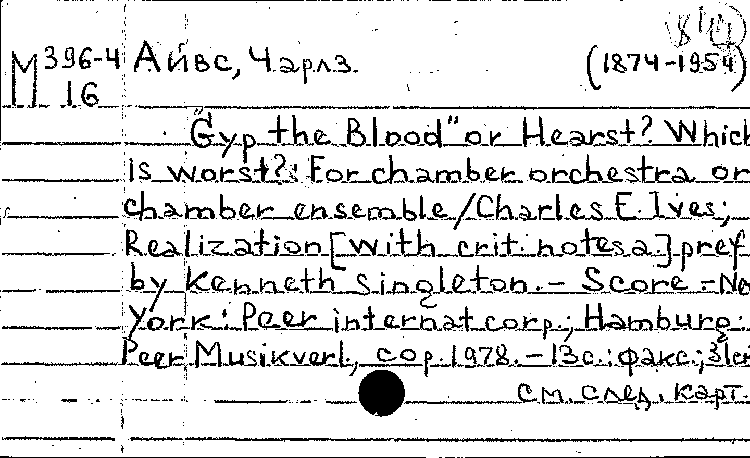 М 396-4 Айвс, Чарлз. (1874-1954)
16
"Gyp the Blood" or Hearst? Which
is worst?: For chamber orchestra or
chamber ensemble/Charles E. Ives;
Realization [with crit. notes a.] pref
by Kenneth Singleton.- Score.-Ne
York: Peer internat corp.; Hamburg:
Peer Musikverl., cop. 1978.-13с.: факс.;
см. след. карт.